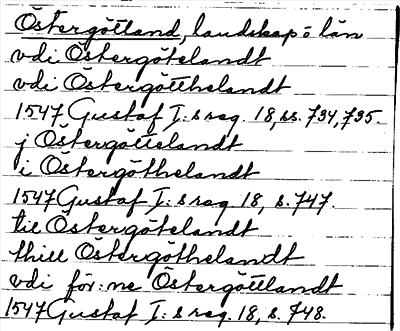 Östergötland, landskap o län
vdi Östergötelandt
vdi Östergötthelandt
1547 Gustaf I:s reg. 18, ss. 734, 735.
j Östergöttelandt
i Östergöthelandt
1547 Gustaf I:s reg 18, s. 747.
til Östergötelandt
thill Östergöthelandt
vdi för:ne Östergöttlandt
1547 Gustaf I:s reg. 18, s. 748.